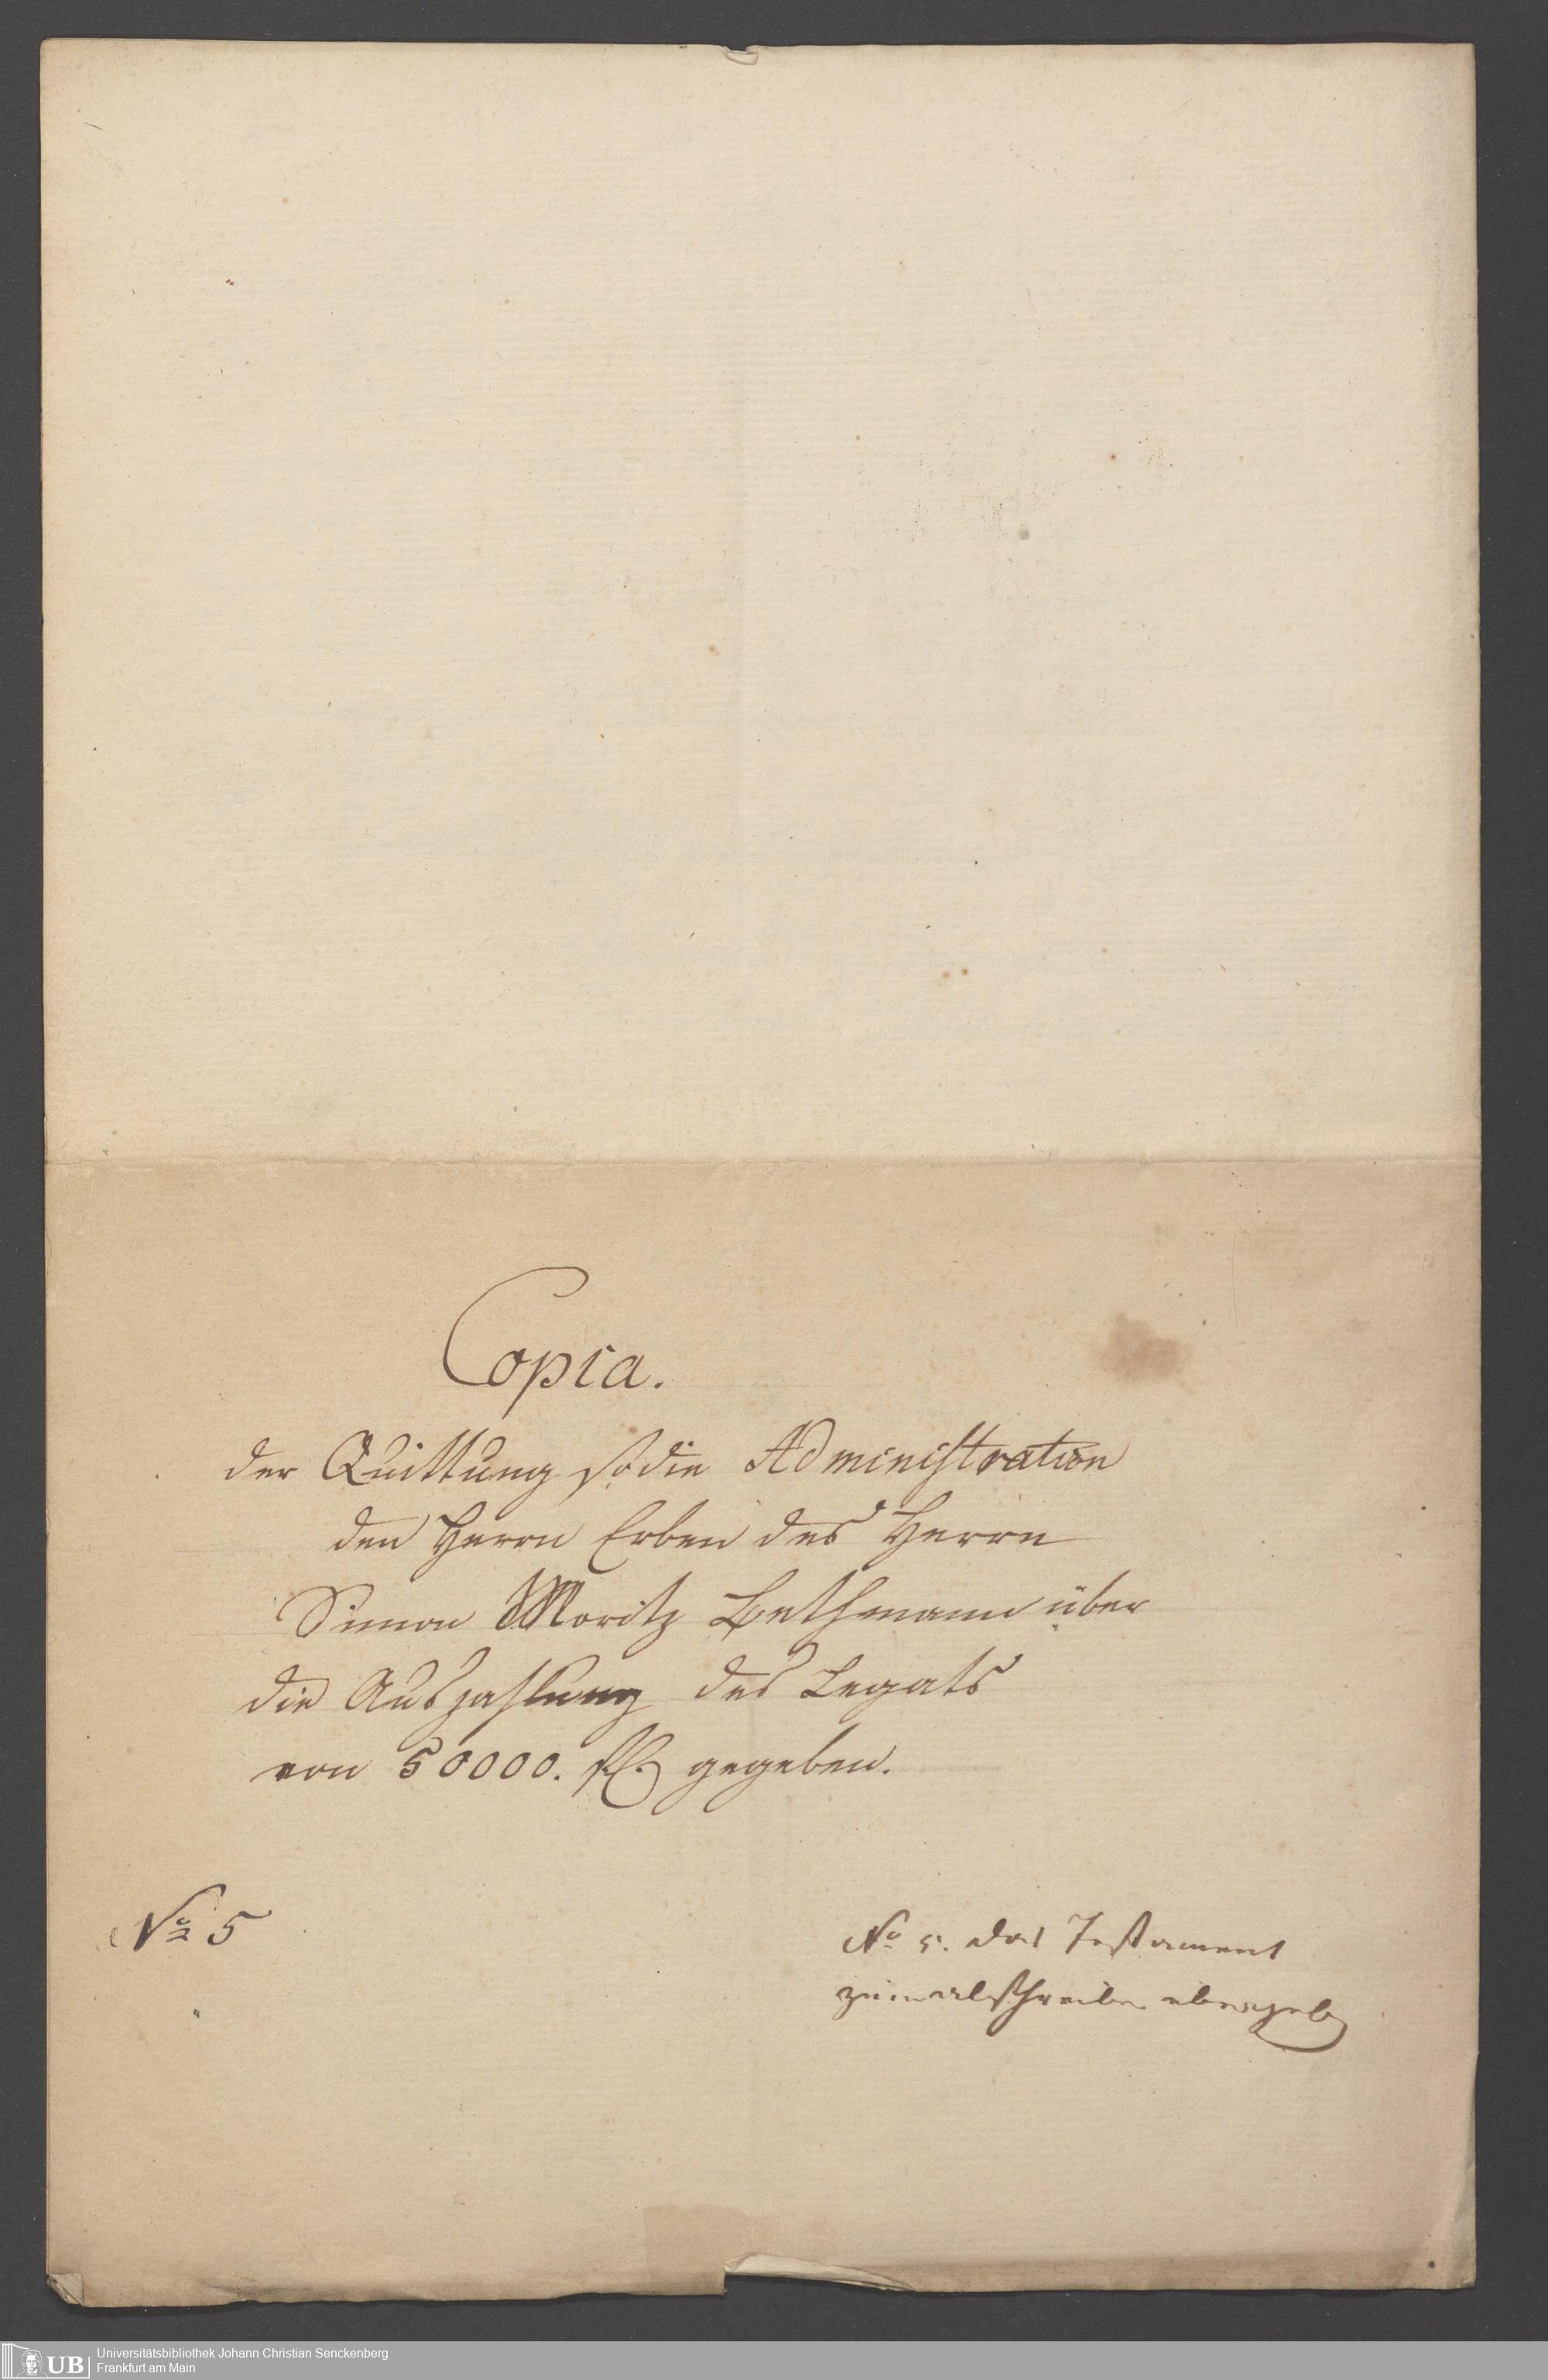 Copia.
der Quittung so die Administration
den Herrn Erben des Herrn
Simon Moritz Bethmann über
die Auszahlung des Legats
von 50000. fl. gegeben.
No 5
No 5. das Testament
zum abschreiben übergeben
UB
Universitätsbibliothek Johann Christian Senckenberg
Frankfurt am Main